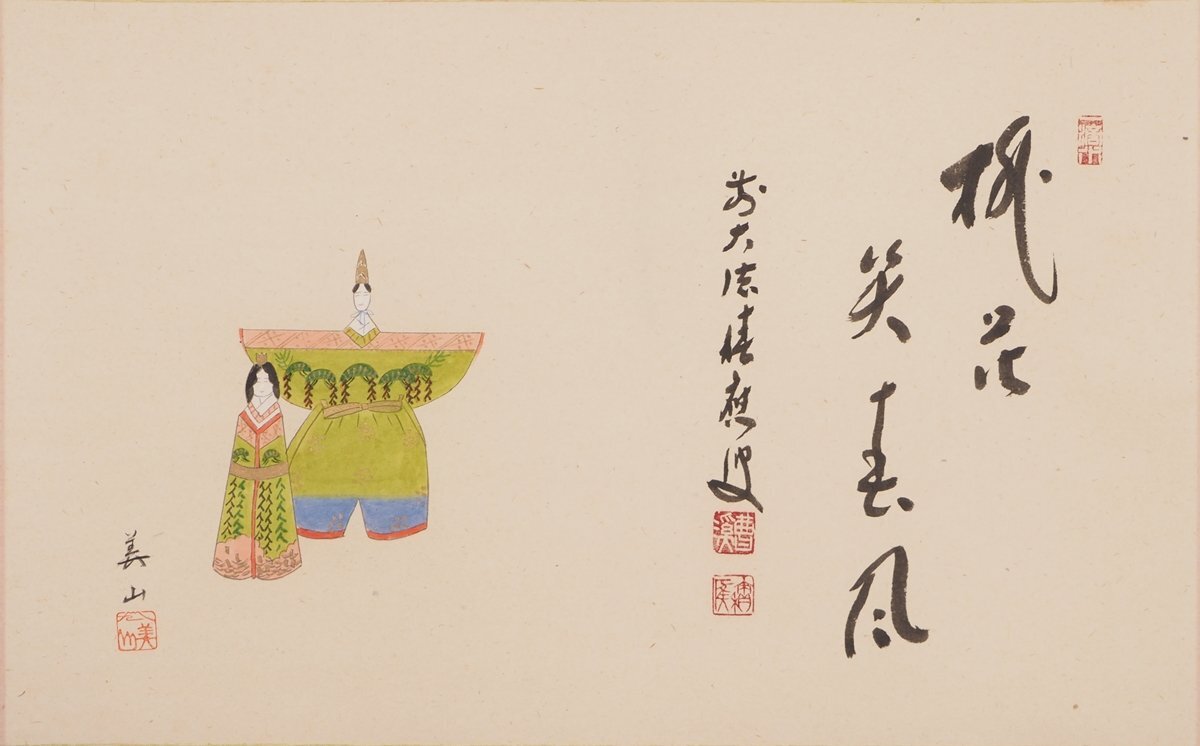 桃花
笑春風
前大徳積應叟
美山